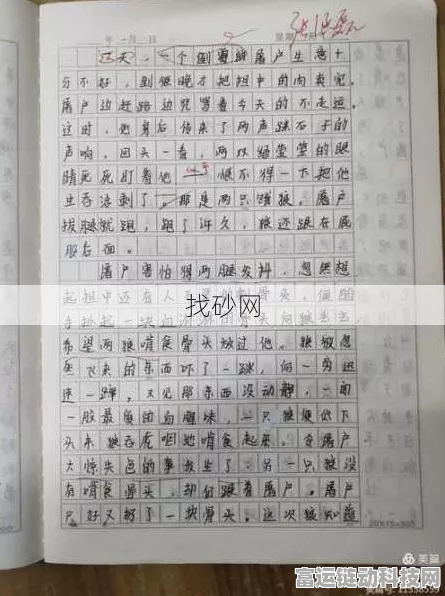 年 月 日
星期
这天，一个倒霉的屠户生意十
分不好，到很晚才把担中的肉卖完。
屠户边赶路边咒骂着今天的不走运。
这时，他身后传来了两声踩石子的
声响，回头一看，两双绿莹莹的眼
睛死死盯着他，恨不得一下把他
生吞活剥了。那是两只饿狼。屠户
拔腿就跑，跑了许久，狼还跟在屁
股后面。
屠户害怕得两腿发抖，忽然想
起担中还有人
一块血 骨头向狼丢去，
希望两狼啃食骨头放过他。狼被忽
然飞来的东西吓了一跳，向一旁迅
速一蹿，又见那东西没动静，一闻
一股最爱的血腥味，一只狼便低下
头来 狼吞虎咽地啃食起来。令屠户
大惊失色的事发生了：另一只狼没
有啃食骨头，却仍跟着屠户。屠户
只好又扔了一块骨头。这次狼知道
找砂网
20×15=300
美篇
富运链动科技网